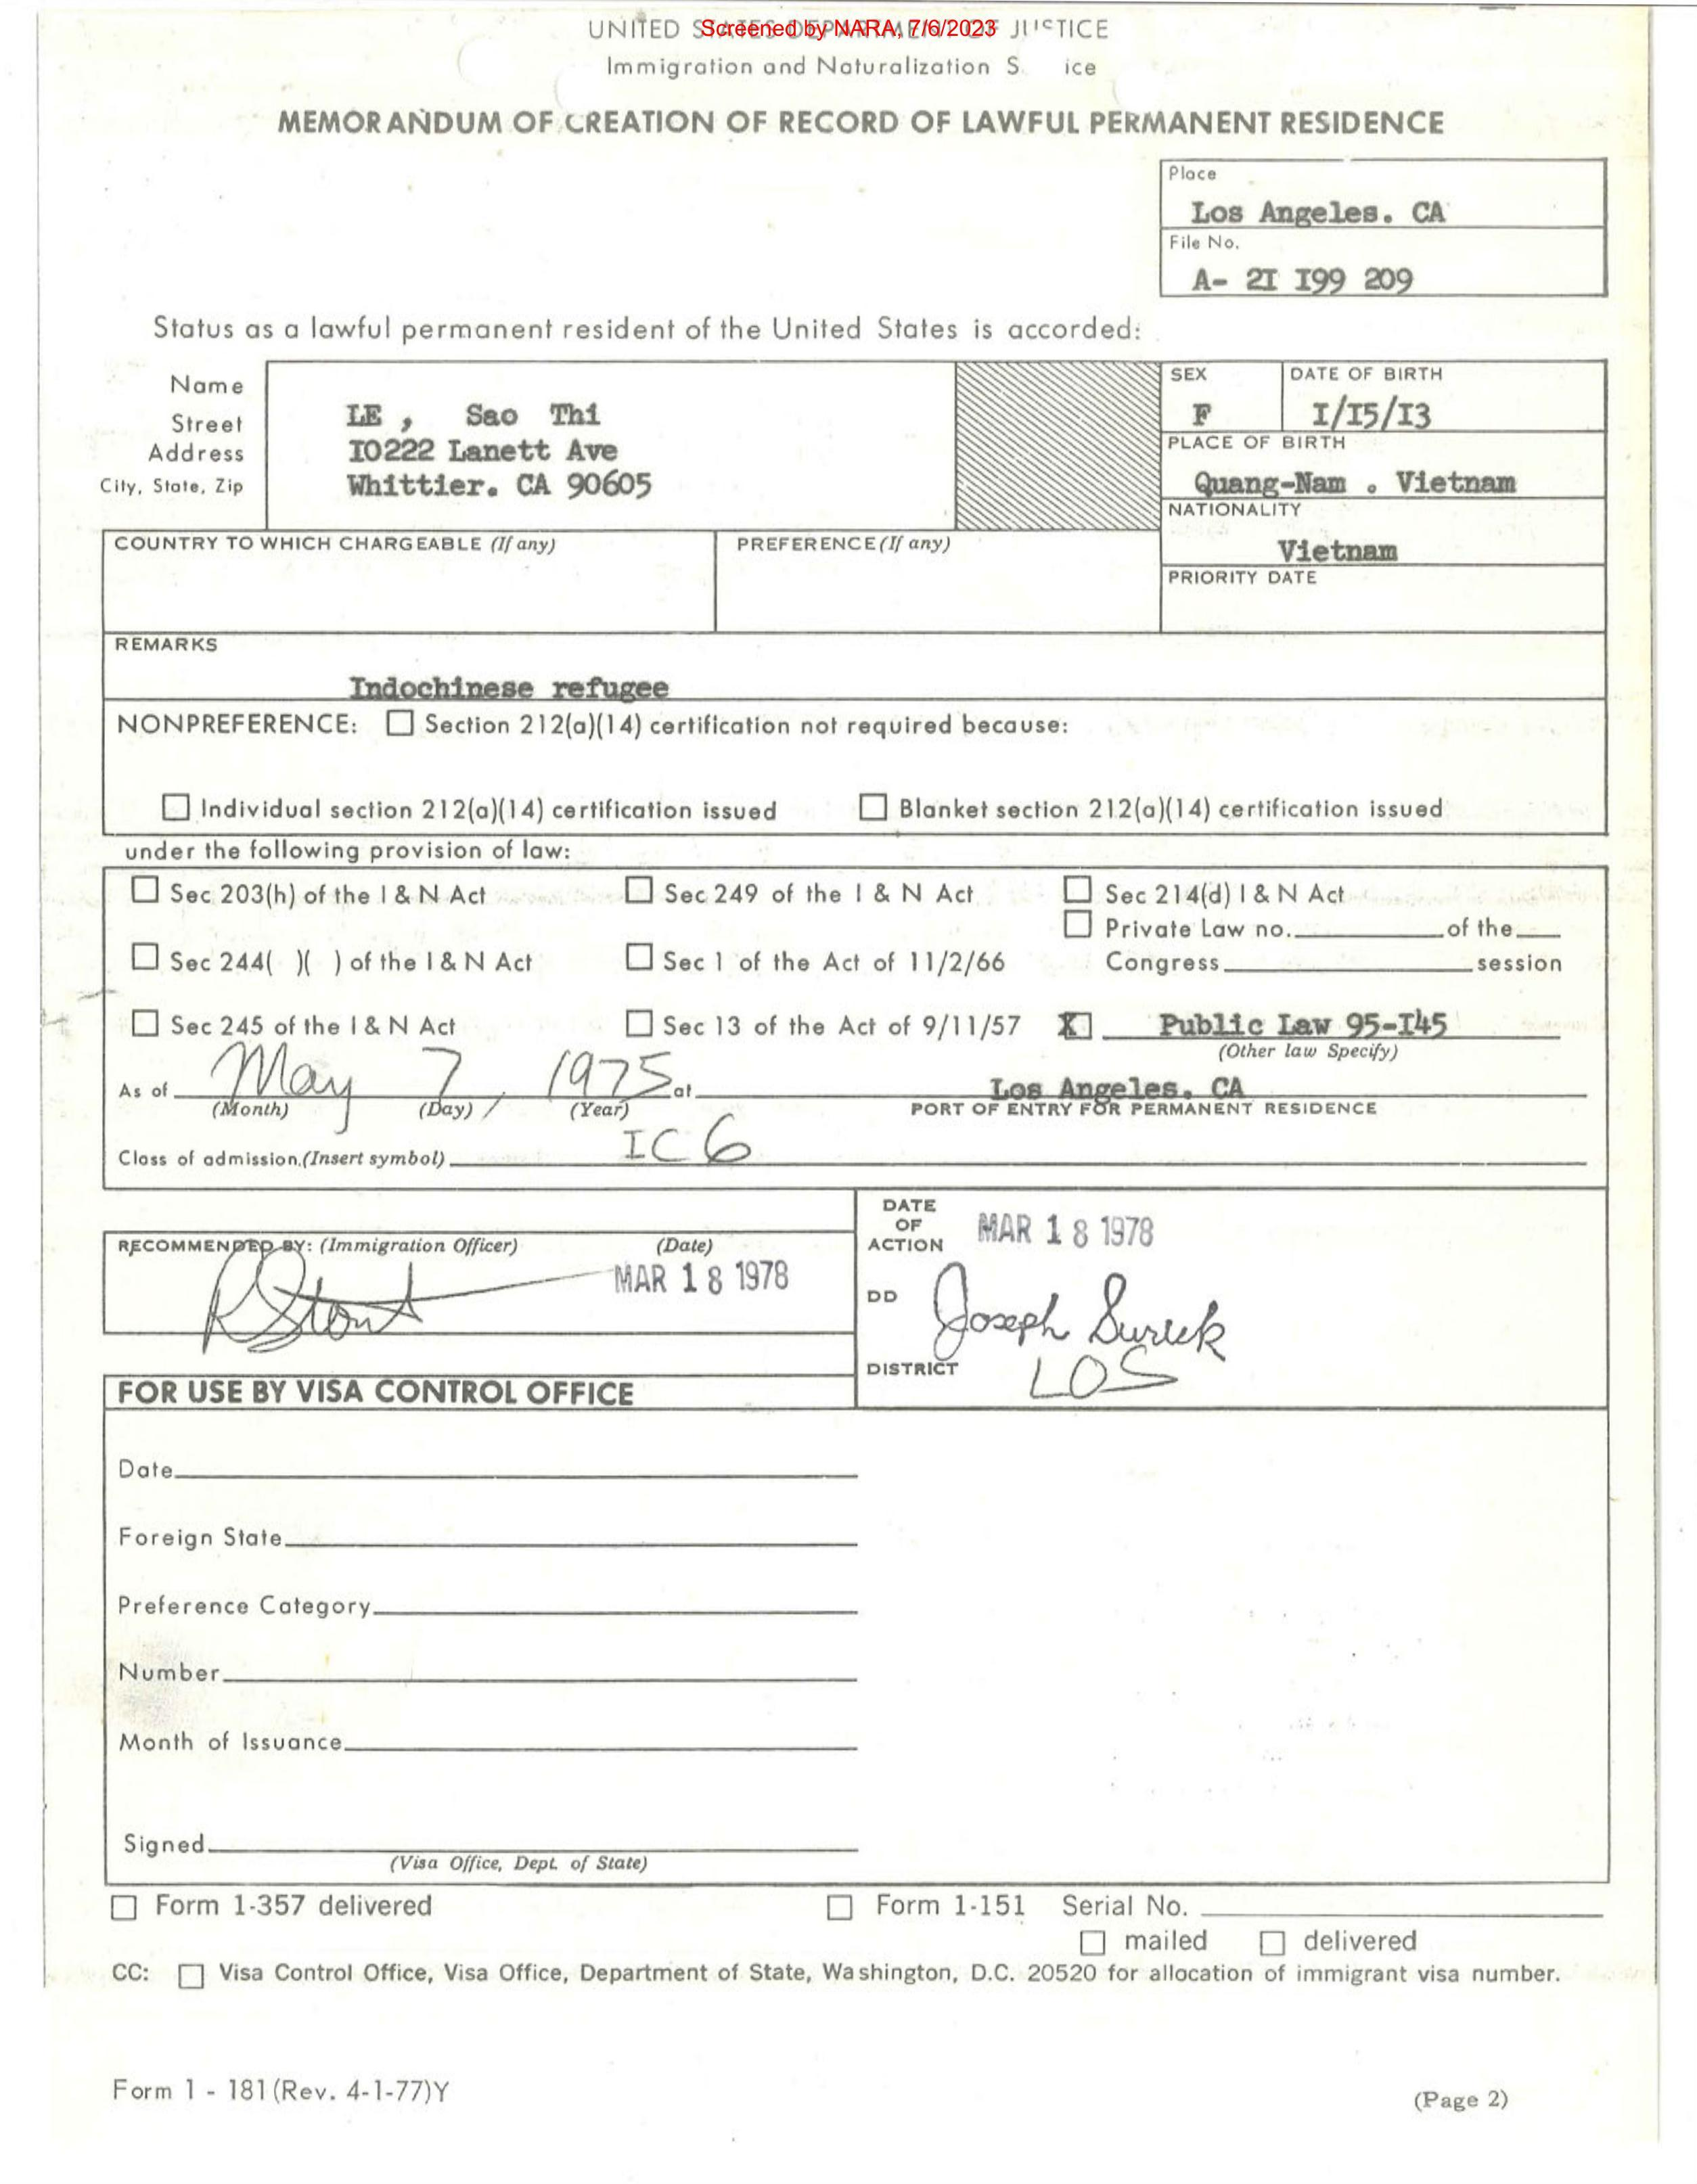 UNITED STATES DEPARTMENT OF JUSTICE
Screened by NARA, 7/6/2023
Immigration and Naturalization S ice
MEMORANDUM OF CREATION OF RECORD OF LAWFUL PERMANENT RESIDENCE
Place
Los Angeles. CA
File No.
A- 2I I99 209
Status as a lawful permanent resident of the United States is accorded:
Name
Street
Address
City, State, Zip
LE , Sao Thi
I0222 Lanett Ave
Whittier. CA 90605
SEX
F
DATE OF BIRTH
I/I5/I3
PLACE OF BIRTH
Quang-Nam . Vietnam
NATIONALITY
Vietnam
COUNTRY TO WHICH CHARGEABLE (If any)
PREFERENCE (If any)
PRIORITY DATE
REMARKS
Indochinese refugee
NONPREFERENCE: ☐ Section 212(a)(14) certification not required because:
☐ Individual section 212(a)(14) certification issued ☐ Blanket section 212(a)(14) certification issued
under the following provision of law:
☐ Sec 203(h) of the I & N Act ☐ Sec 249 of the I & N Act ☐ Sec 214(d) I & N Act
☐ Private Law no. of the
☐ Sec 244( )( ) of the I & N Act ☐ Sec 1 of the Act of 11/2/66 Congress session
☐ Sec 245 of the I & N Act ☐ Sec 13 of the Act of 9/11/57 X Public Law 95-I45
(Other law Specify)
As of May 7, 1975 at Los Angeles. CA
(Month) (Day) (Year) PORT OF ENTRY FOR PERMANENT RESIDENCE
Class of admission (Insert symbol) IC6
RECOMMENDED BY: (Immigration Officer) (Date)
MAR 18 1978
DATE
OF
ACTION
MAR 18 1978
DD
Joseph
DISTRICT
LOS
FOR USE BY VISA CONTROL OFFICE
Date
Foreign State
Preference Category
Number
Month of Issuance
Signed
(Visa Office, Dept. of State)
☐ Form 1-357 delivered ☐ Form 1-151 Serial No.
☐ mailed ☐ delivered
CC: ☐ Visa Control Office, Visa Office, Department of State, Washington, D.C. 20520 for allocation of immigrant visa number.
Form 1 - 181 (Rev. 4-1-77)Y
(Page 2)